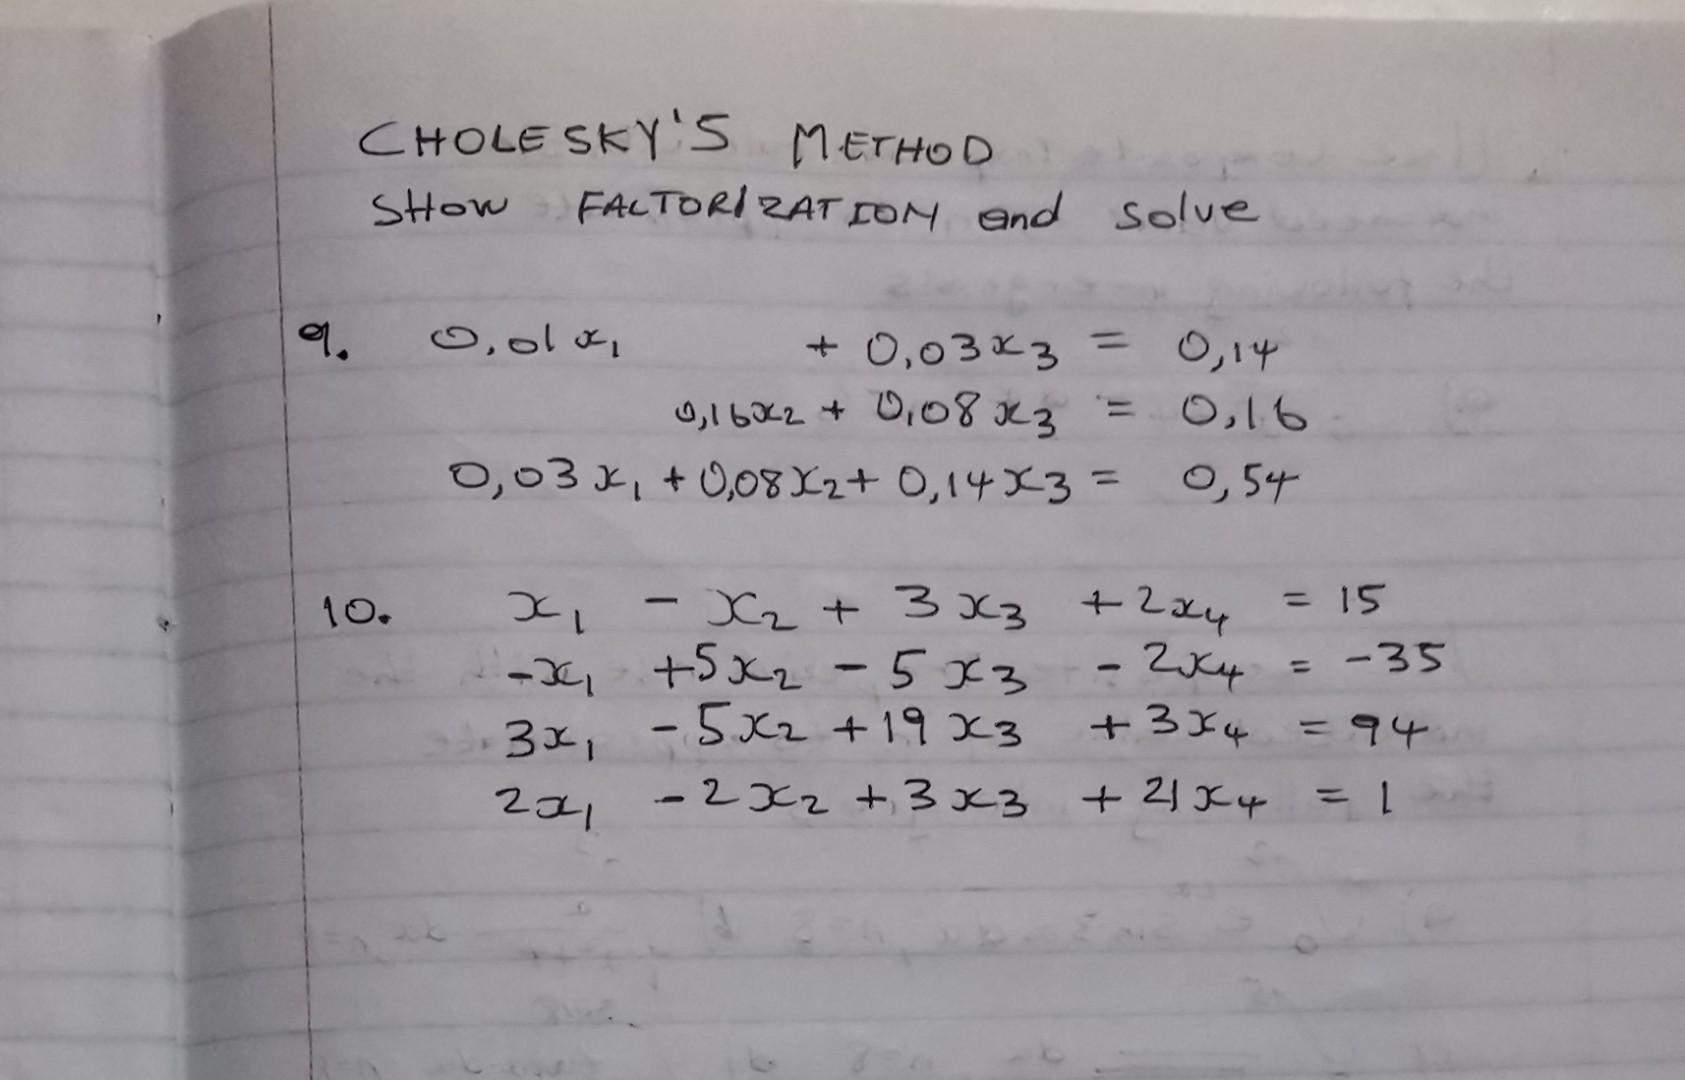 CHOLESKY'S METHOD
SHOW FACTORIZATION and solve
9. 0,01x₁ + 0,03x₃ = 0,14
0,16x₂ + 0,08x₃ = 0,16
0,03x₁ + 0,08x₂ + 0,14x₃ = 0,54
10. x₁ - x₂ + 3x₃ + 2x₄ = 15
-x₁ +5x₂ - 5x₃ - 2x₄ = -35
3x₁ - 5x₂ + 19x₃ + 3x₄ = 94
2x₁ - 2x₂ + 3x₃ + 21x₄ = 1